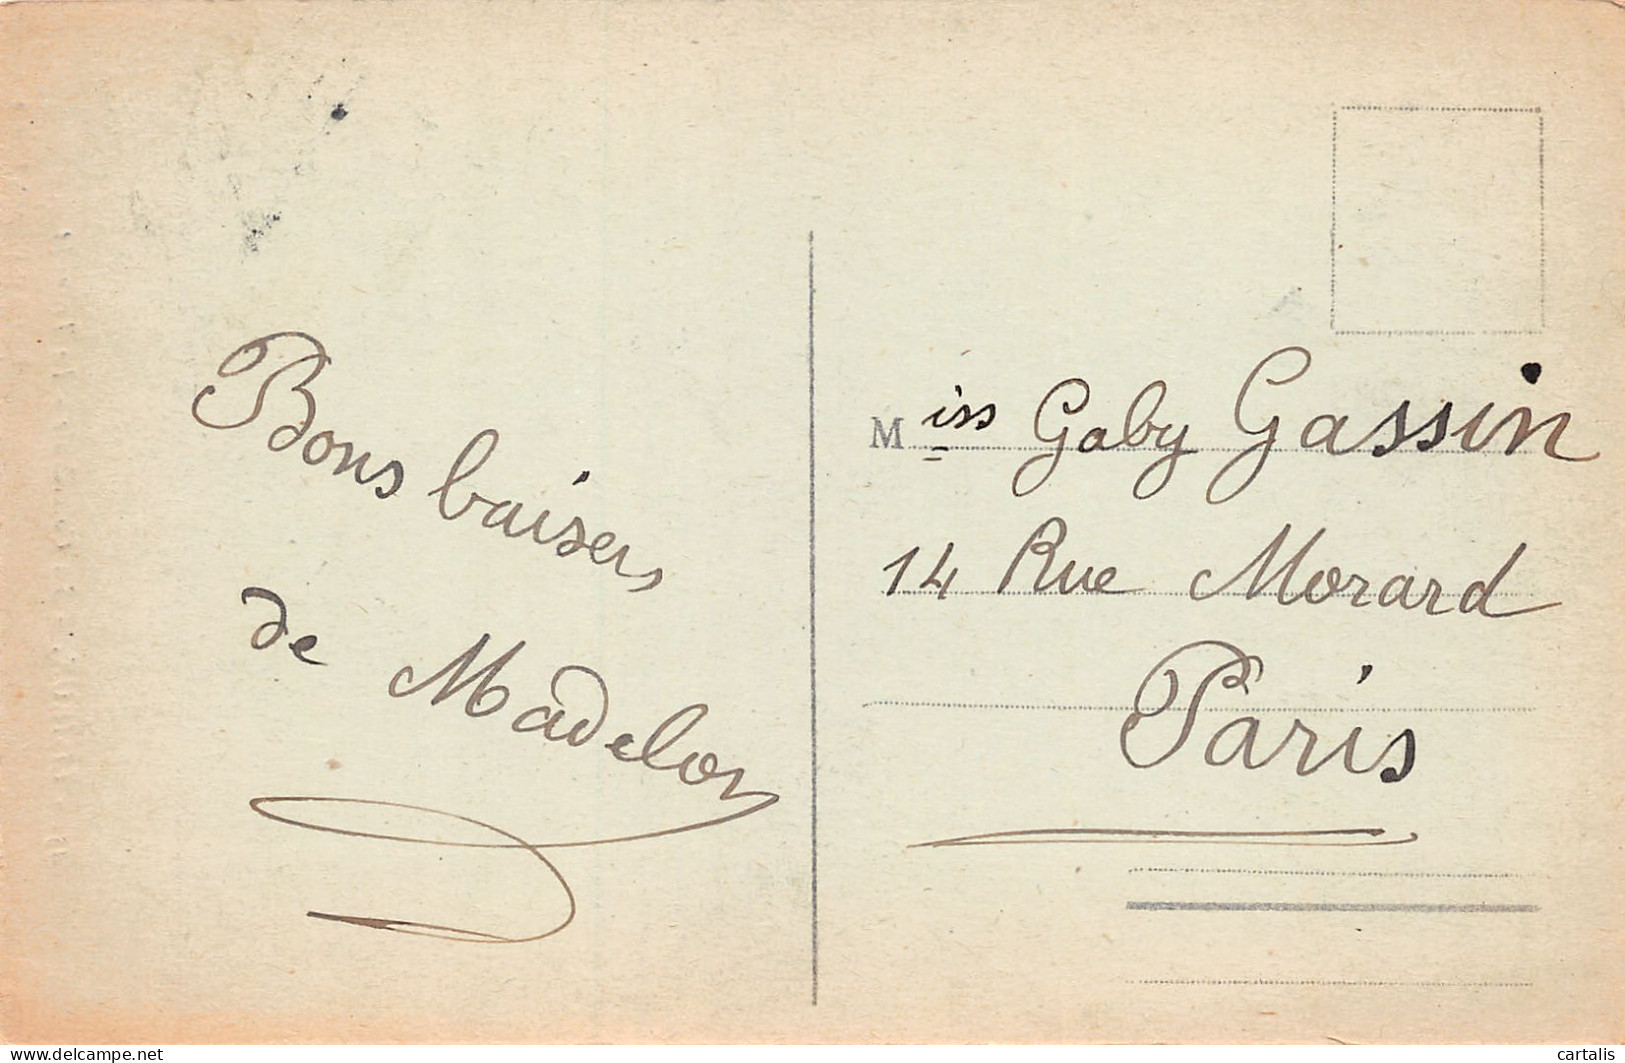 Bons baisers
de Madelon
Miss Gaby Gassin
14 Rue Morard
Paris
www.delcampe.net
cartalis